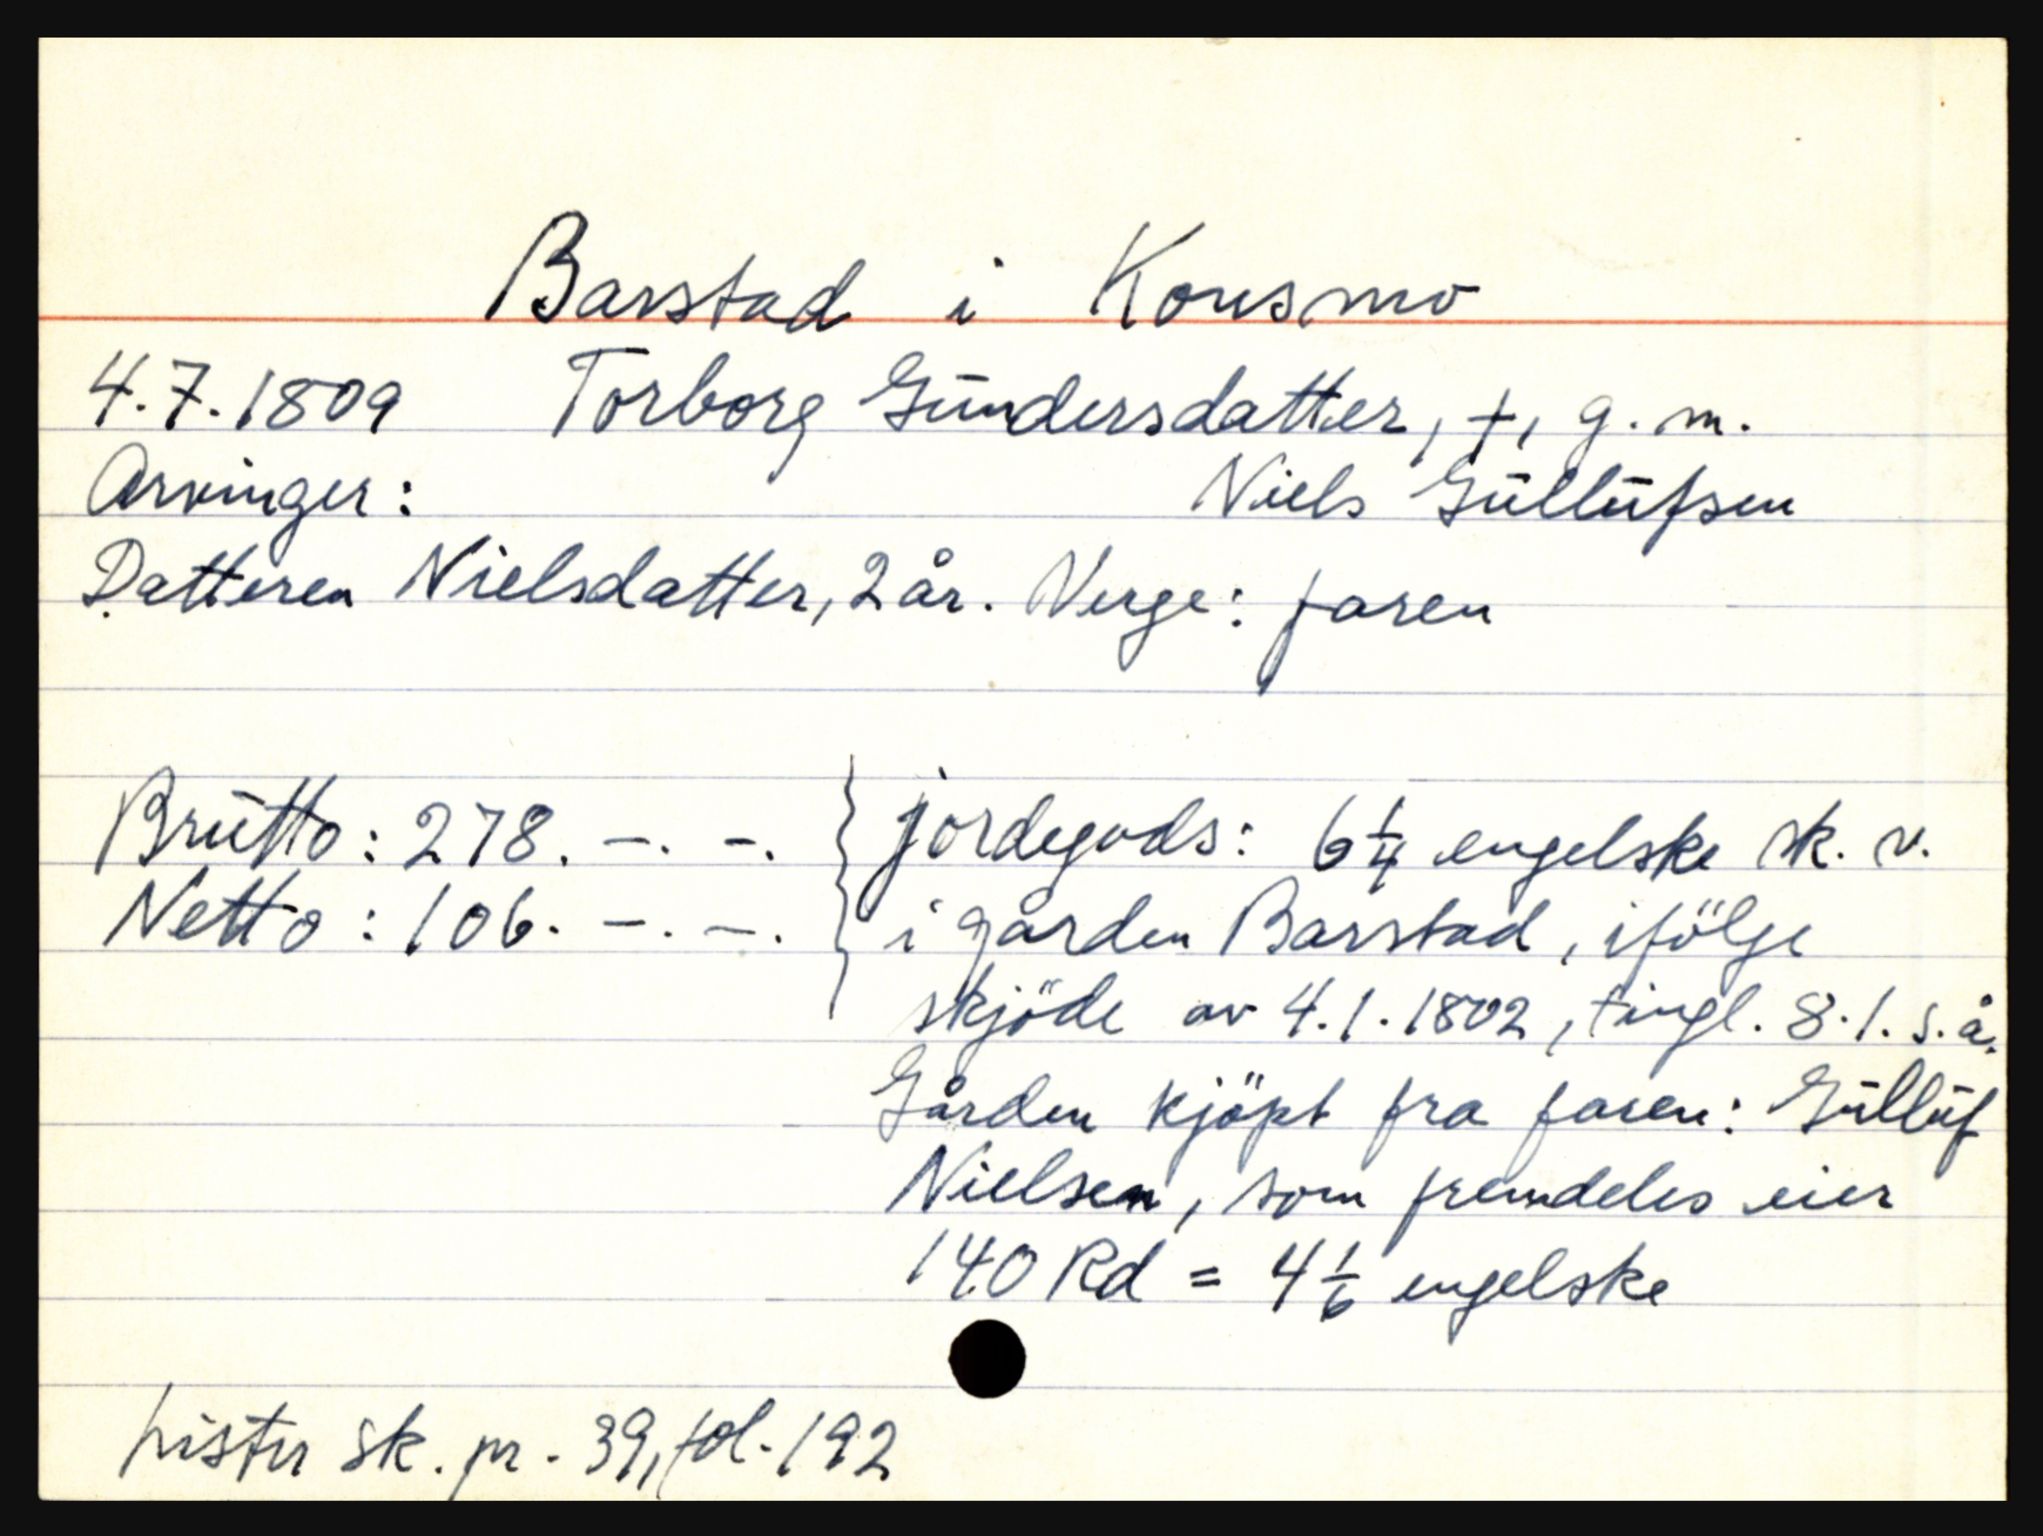 Barstad i Konsmo
4.7.1809 Torborg Gundersdatter, †, g. m.
Arvinger: Niels Gullufsen
Datteren Nielsdatter, 2 år. Verge: faren
Brutto: 278. –. –. } jordegods: 6 1/4 engelske sk. v.
Netto: 106. –. –. i gården Barstad, ifölge
skjöde av 4.1.1802, tingl. 8.1. s. å.
Gården kjöpt fra faren: Gulluf
Nielsen, som fremdeles eier
140 Rd = 4 1/6 engelske
Lister sk. pr. 39, fol. 192